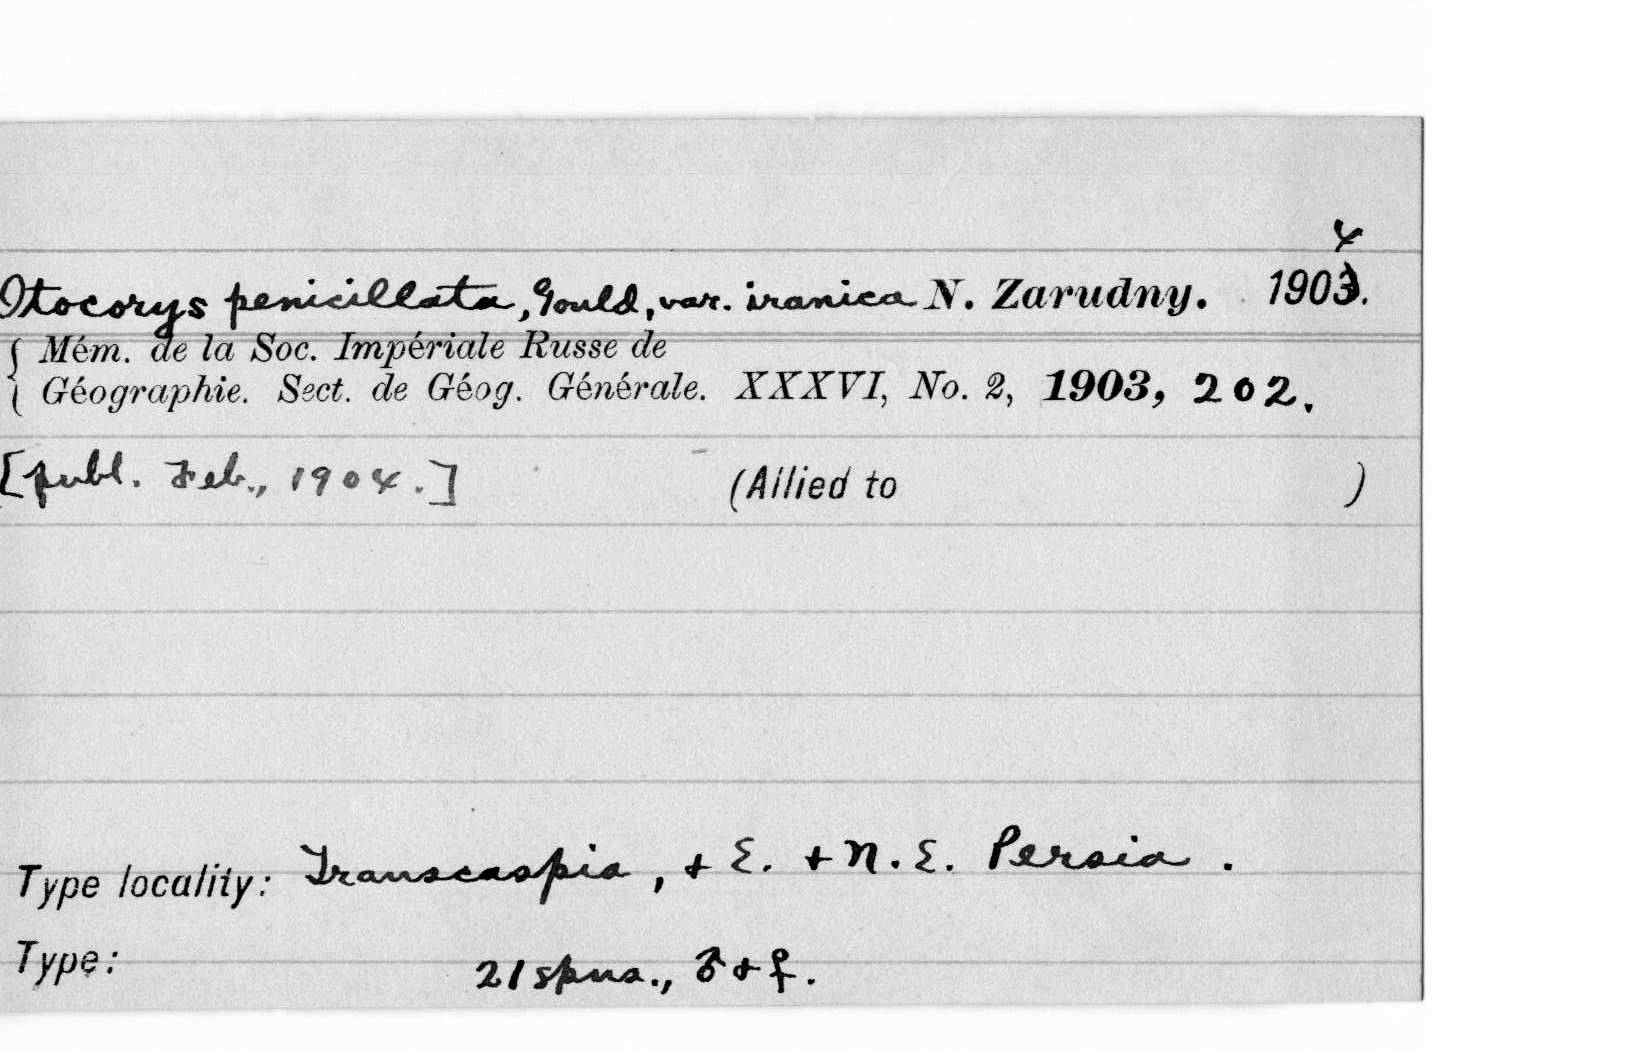 4
Otocorys penicillata, Gould, var. iranica N. Zarudny. 1903.
{ Mém. de la Soc. Impériale Russe de
Géographie. Sect. de Géog. Générale. XXXVI, No. 2, 1903, 202.
[publ. Feb., 1904.] (Allied to )
Type locality: Transcaspia, + E. + N.E. Persia.
Type: 21 spms., ♂ + ♀.